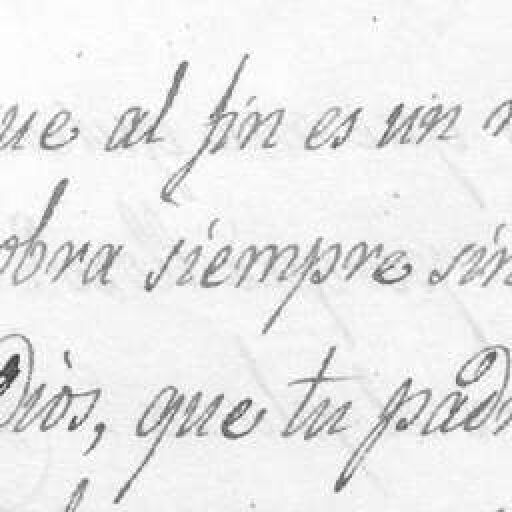 ue al fin es un
obra siempre sin
Diòs, que tu padr